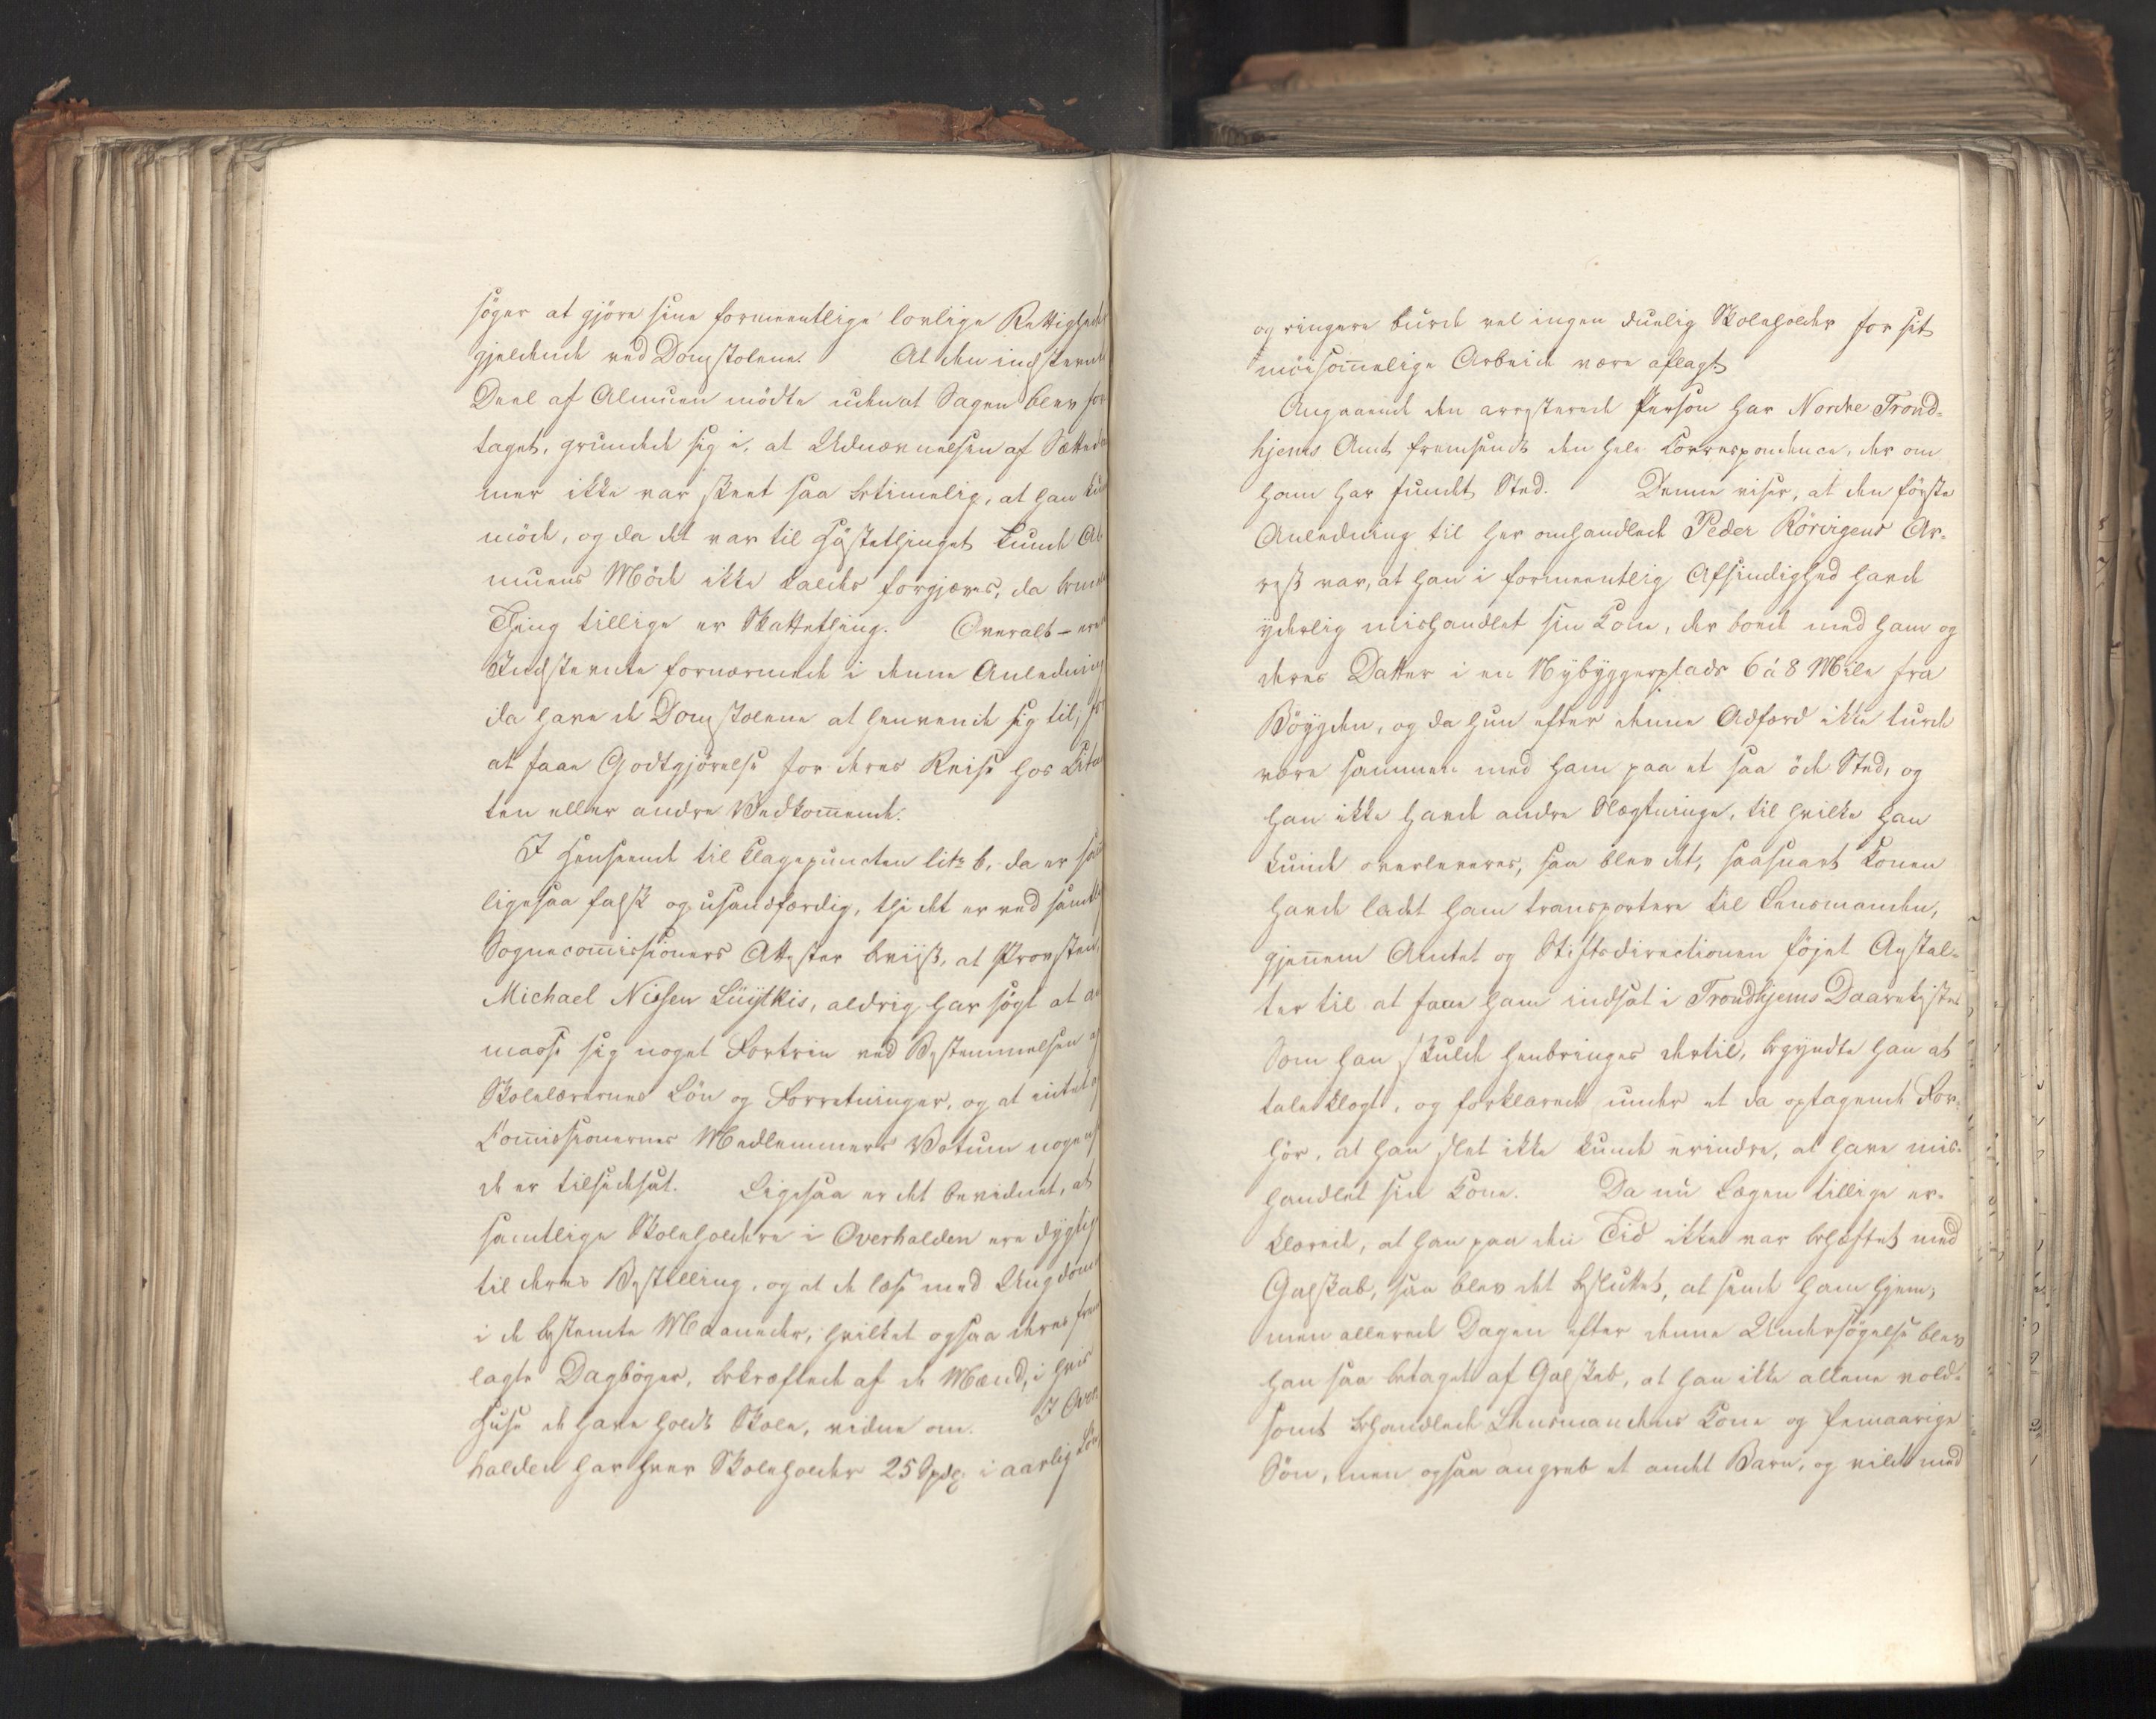 söger at gjöre sine formeentlige lovlige Rettighed
gjeldende ved Domstolene. At den indstevnte
Deel af Almuen mödte uden at Sagen blev fore
taget, grunded sig i, at Udnævnelsen af Sættedom
mer ikke var skeet saa betimelig, at han kun
möde, og da det var til Höstethinget kunde Al
muens Möde ikke kaldes forgjæves, da bem
Thing tillige er Skattething. Overalt – ere
Indstevnte fornærmede i denne Anledning
da have de Domstolene at henvende sig til, for
at faae Godtgjörelse for deres Reise hos Citan
ten eller andre Vedkom̅ende.
I Henseende til Klagepuncten litr b, da er
ligesaa falsk og usandfærdig, thi det er ved samtl
Sognecom̅issioners Attester beviist, at Provsten
Michael Nissen Lüytkis, aldrig har sögt at an
masse sig noget Fortrin ved Bestemmelsen af
Skolelærernes Lön og Forretninger, og at intet af
Kom̅issionernes Medlemmers Votum nogen
de er tilsidesat. Ligesaa er det bevidnet, at
samtlige Skoleholdere i Overhalden ere dygtige
til deres Bestilling, og at de læse med Ungdom
i de bestemte Maaneder, hvilket ogsaa deres frem
lagte Dagböger, bekræftede af de Mænd, i hvis
Huse de have holdt Skole, vidne om. I Over
halden har hver Skoleholder 25 Spd i aarlig Lön,
og ringere burde vel ingen duelig Skoleholder for sit
möisom̅elige Arbeide være aflagt.
Angaaende den arresterede Person har Nordre Trond-
hjems Amt fremsendt den hele Correspondence, der om
ham har fundet Sted. Denne viser, at den förste
Anledning til her omhandlede Peder Rörvigens Ar-
rest var, at han i formeentlig Afsindighed havde
yderlig mishandlet sin Kone, der boede med ham og
deres Datter i en Nybyggerplads 6 à 8 Mile fra
Böygden, og da hun efter denne Adfærd ikke turde
være sammen med ham paa et saa öde Sted, og
han ikke havde andre Slægtninge, til hvilke han
kunde overleveres, saa blev det, saasnart Konen
havde ladet ham transportere til Lensmanden,
gjen̅em Amtet og Stiftsdirectionen föjet Anstal-
ter til at faae ham indsat i Trondhjems Daarekiste
Som han skulde henbringes dertil, begyndte han at
tale klogt, og forklarede under et da optagende For-
hör, at han slet ikke kunde erindre, at have mis-
handlet sin Kone. Da nu Lægen tillige er-
klærede, at han paa den Tid ikke var behæftet med
Galskab, saa blev det besluttet, at sende ham hjem,
men allerede Dagen efter denne Undersögelse blev
han saa betaget af Galskab, at han ikke allene vold-
somt behandlede Lensmandens Kone og femaarige
Sön, men ogsaa angreb et andet Barn, og vilde med